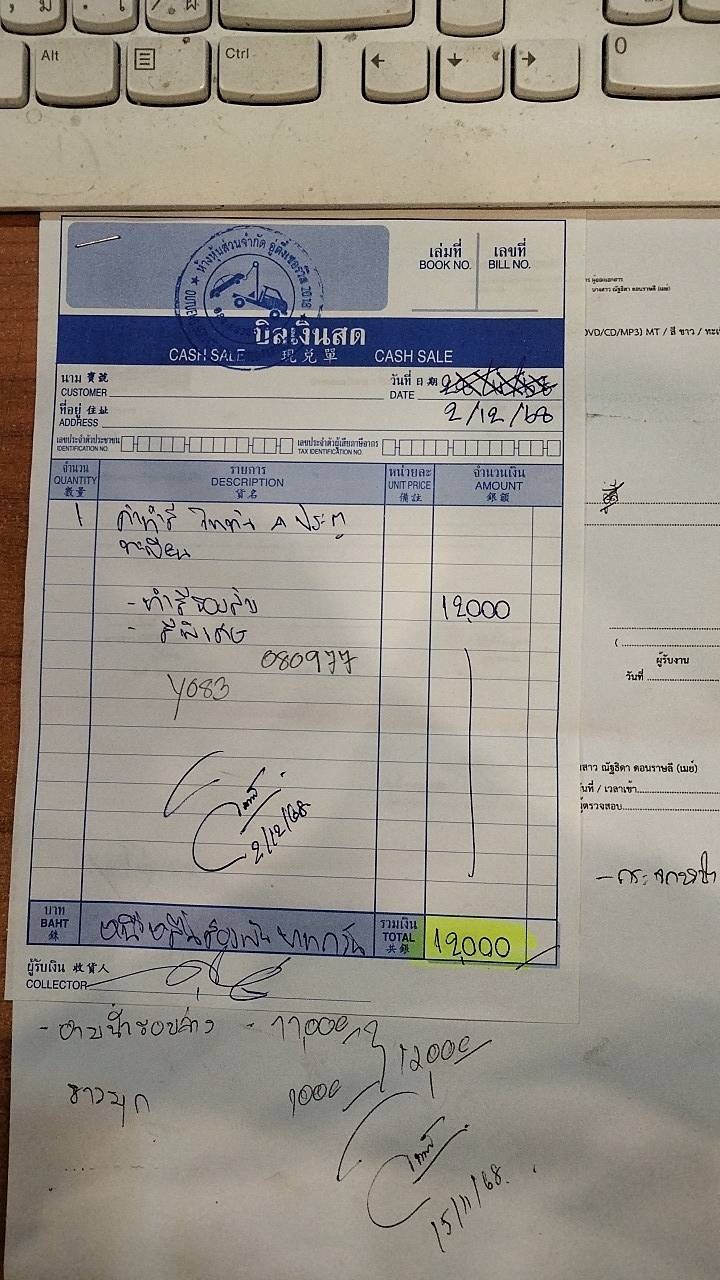 Alt
Ctrl
0
ห้างหุ้นส่วนจำกัด อู่ตี๋เซอร์วิส 2018
เล่มที่ เลขที่
BOOK NO. BILL NO.
บิลเงินสด
CASH SALE 現兌單 CASH SALE
นาม 寶號
CUSTOMER
วันที่ 日期
DATE
2/12/68
ที่อยู่ 住址
ADDRESS
เลขประจำตัวประชาชน
IDENTIFICATION NO.
เลขประจำตัวผู้เสียภาษีอากร
TAX IDENTIFICATION NO.
จำนวน รายการ หน่วยละ จำนวนเงิน
QUANTITY DESCRIPTION UNIT PRICE AMOUNT
數量 貨名 備註 銀額
1 ค่าทำสี ประตู
ทะเบียน
- ทำสีรอบคัน 12,000
- สีพิเศษ
080977
Y083
2/12/68
บาท
BAHT
銖
รวมเงิน
TOTAL
共銀
12,000
ผู้รับเงิน 收貨人
COLLECTOR
- 11,000
ขาวมุก 1000
12,000
15/11/68
นางสาว ณัฐธิดา ดอนราษลี (เมย์)
DVD/CD/MP3) MT / สี ขาว / ทะเ
(
ผู้รับงาน
วันที่
สาว ณัฐธิดา ดอนราษลี (เมย์)
วันที่ / เวลาเข้า
ผู้ตรวจสอบ